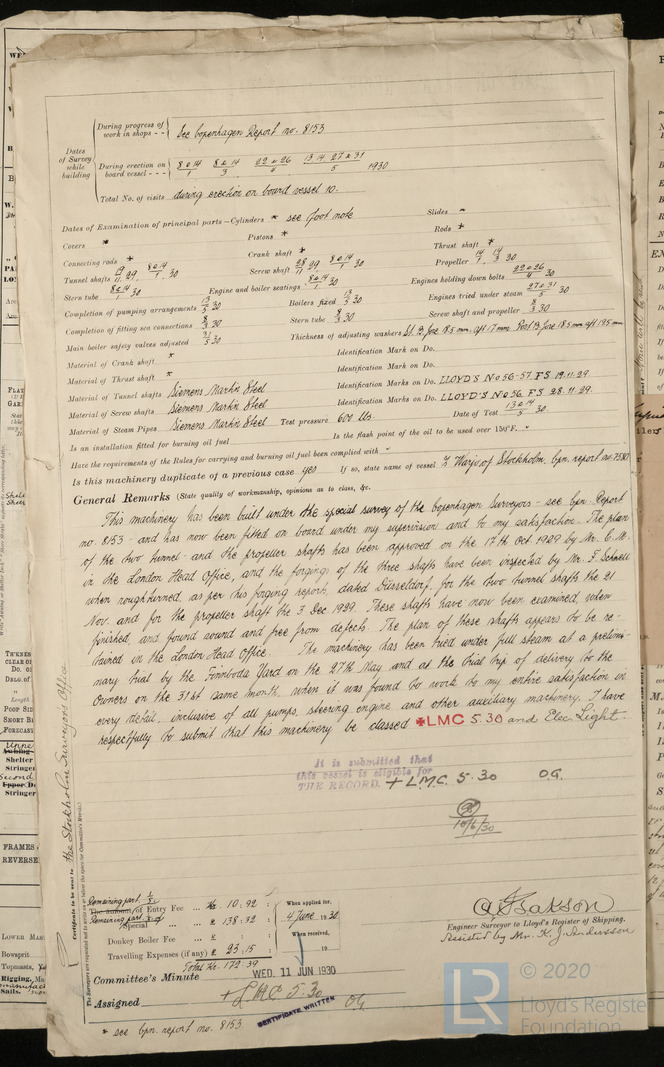 During progress of work in shops - - See Copenhagen Report no. 8153
Dates of Survey while building
During erection on board vessel - - - 8 & 14/1 8 & 14/3 22 & 26/4 13 14 27 & 31/5 1930
Total No. of visits during erection on board vessel 10.
Dates of Examination of principal parts—Cylinders * see foot note Slides *
Covers * Pistons * Rods *
Connecting rods * Crank shaft * Thrust shaft *
Tunnel shafts 19/11 29, 8 & 14/1 30 Screw shaft 28/11 29 8 & 14/1 30 Propeller 14/1 14/3 30
Stern tube 8 & 14/1 30 Engine and boiler seatings 8 & 14/1 30 Engines holding down bolts 22 & 26/4 30
Completion of pumping arrangements 13/5 30 Boilers fixed 13/5 30 Engines tried under steam 27 & 31/5 30
Completion of fitting sea connections 8/3 30 Stern tube 8/3 30 Screw shaft and propeller 8/3 30
Main boiler safety valves adjusted 31/5 30 Thickness of adjusting washers St. B. fore 18.5 mm. aft 17 mm Port B. fore 18.5 mm aft 19.5 mm
Material of Crank shaft * Identification Mark on Do.
Material of Thrust shaft * Identification Mark on Do.
Material of Tunnel shafts Siemens Martin Steel Identification Marks on Do. LLOYD'S No 56-57 FS 19.11.29.
Material of Screw shafts Siemens Martin Steel Identification Marks on Do. LLOYD'S No 56. FS 28.11.29.
Material of Steam Pipes Siemens Martin Steel Test pressure 600 lbs. Date of Test 13 & 14/5 30.
Is an installation fitted for burning oil fuel Is the flash point of the oil to be used over 150°F. "
Have the requirements of the Rules for carrying and burning oil fuel been complied with "
Is this machinery duplicate of a previous case yes If so, state name of vessel Warjo, of Stockholm, Cpn. report no.
General Remarks (State quality of workmanship, opinions as to class, &c.
This machinery has been built under the special survey of the Copenhagen Surveyors - see Cpn. Report
no. 8153 - and has now been fitted on board under my supervision and to my satisfaction. The plan
of the two tunnel - and the propeller shafts has been approved on the 17th Oct 1929 by Mr. C. M.
in the London Head Office, and the forgings of the three shafts have been inspected by Mr. F. Schnell
when roughturned, as per his forging reports, dated Düsseldorf, for the two tunnel shafts the 21
Nov. and for the propeller shaft the 3 Dec 1929. These shafts have now been examined, when
finished, and found sound and free from defects. The plan of these shafts appears to be re-
tained in the London Head Office. The machinery has been tried under full steam at a prelimi-
nary trial by the Finnboda Yard on the 27th May and at the trial trip of delivery to the
Owners on the 31st same month, when it was found to work to my entire satisfaction in
every detail, inclusive of all pumps, steering engine and other auxiliary machinery. I have
respectfully to submit that this machinery be classed ✠LMC 5.30 and Elec. Light.
It is submitted that
this vessel is eligible for
THE RECORD. + L.M.C. 5.30 O.G.
10/6/30
Remaining part
The amount of Entry Fee ... Kr. 10.92 : When applied for,
Remaining part of Special ... " 138.32 : 4 June 1930
Donkey Boiler Fee ... " : When received,
Travelling Expenses (if any) " 23.15 : 19
Total Kr. 172.39
Engineer Surveyor to Lloyd's Register of Shipping.
Assisted by Mr. K. J. Andersson
Committee's Minute WED. 11 JUN 1930
Assigned + L.M.C 5.30 O.G.
CERTIFICATE WRITTEN
* see Cpn. report no. 8153
Certificate to be sent to the Stockholm Surveyors Office
© 2020
LR
Lloyd's Registe
Foundation